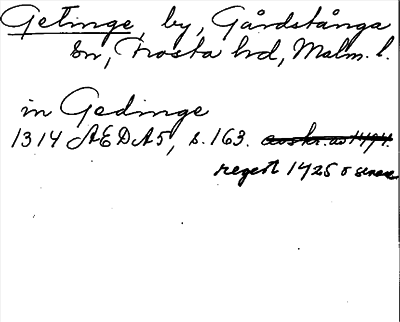 Getinge, by, Gårdstånga
sn, Frosta hd, Malm. l.
in Gedinge
1314 AEDA5, s. 163. avskr. av 1494.
regest 1425 o senare